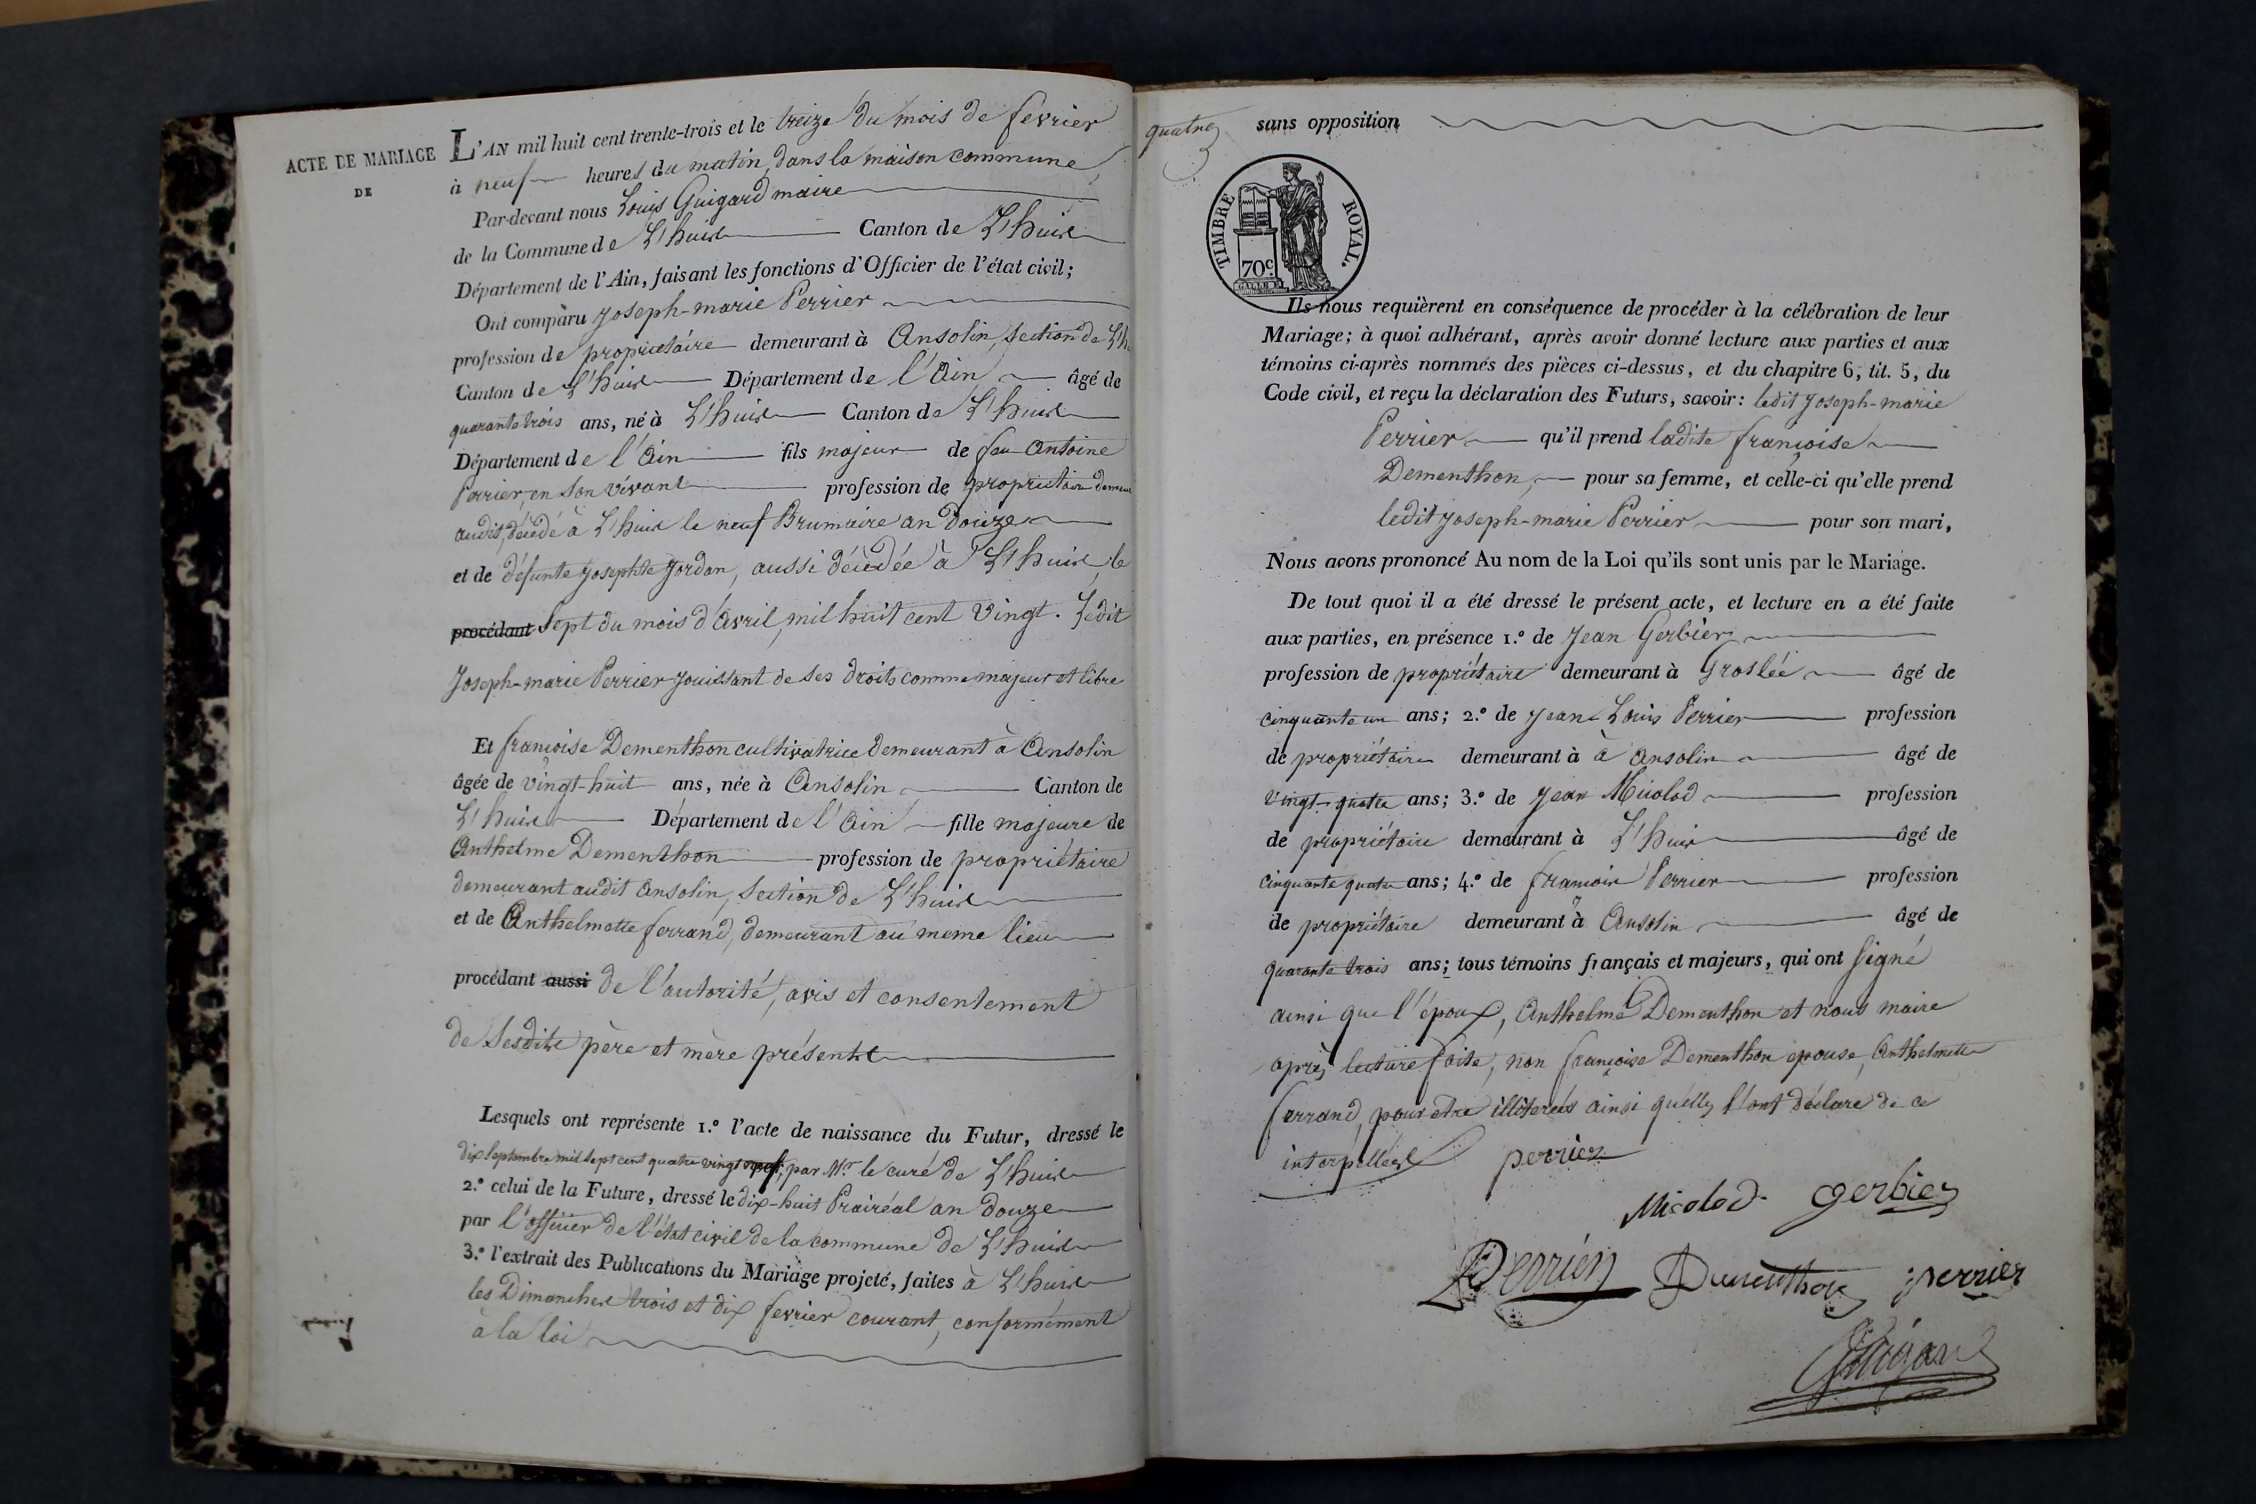 ACTE DE MARIAGE
DE
L'AN mil huit cent trente-trois et le treize du mois de fevrier
à neuf heures du matin, dans la maison commune
Par-devant nous Louis Guigard maire
de la Commune de L'huis Canton de L'huis
Département de l'Ain, faisant les fonctions d'Officier de l'état civil;
Ont comparu Joseph-marie Perrier
profession de propriétaire demeurant à Ansolin, section de L'h
Canton de L'huis Département de l'Ain âgé de
quarante trois ans, né à L'huis Canton de L'huis
Département de l'Ain fils majeur de feu Antoine
Perrier, en son vivant profession de propriétaire demeur
audit, décédé à L'huis le neuf Brumaire an douze
et de défunte Josephte Jordan, aussi décédée à L'huis, le
procédant sept du mois d'avril, mil huit cent vingt. Ledit
Joseph-marie Perrier jouissant de ses droits comme majeur et libre
Et françoise Dementhon cultivatrice demeurant à Ansolin
âgée de vingt-huit ans, née à Ansolin Canton de
L'huis Département de l'Ain fille majeure de
Anthelme Dementhon profession de propriétaire
demeurant audit Ansolin, section de L'huis
et de Anthelmette ferrand, demeurant au meme lieu
procédant aussi de l'autorité, avis et consentement
de sesdits père et mère présents
Lesquels ont représenté 1.º l'acte de naissance du Futur, dressé le
dix septembre mil sept cent quatre vingt neuf, par Mr le curé de L'huis
2.º celui de la Future, dressé le dix-huit Prairéal an douze
par l'officier de l'état civil de la commune de L'huis
3.º l'extrait des Publications du Mariage projeté, faites à L'huis
les Dimanches trois et dix fevrier courant, conformément
à la loi
quatre
sans opposition
TIMBRE ROYAL.
70c.
Ils nous requièrent en conséquence de procéder à la célébration de leur
Mariage; à quoi adhérant, après avoir donné lecture aux parties et aux
témoins ci-après nommés des pièces ci-dessus, et du chapitre 6, tit. 5, du
Code civil, et reçu la déclaration des Futurs, savoir: ledit Joseph-marie
Perrier qu'il prend ladite françoise
Dementhon, pour sa femme, et celle-ci qu'elle prend
ledit Joseph-marie Perrier pour son mari,
Nous avons prononcé Au nom de la Loi qu'ils sont unis par le Mariage.
De tout quoi il a été dressé le présent acte, et lecture en a été faite
aux parties, en présence 1.º de Jean Gerbier
profession de propriétaire demeurant à Groslée âgé de
cinquante un ans; 2.º de Jean-Louis Perrier profession
de propriétaire demeurant à à Ansolin âgé de
vingt-quatre ans; 3.º de Jean Micolod profession
de propriétaire demeurant à L'huis âgé de
cinquante quatre ans; 4.º de françois Perrier profession
de propriétaire demeurant à Ansolin âgé de
quarante trois ans; tous témoins français et majeurs, qui ont signé
ainsi que l'époux, Anthelme Dementhon et nous maire
après lecture faite, non françoise Dementhon epouse, Anthelmette
ferrand, pour etre illéterées ainsi quelles l'ont déclaré de ce
interpellées perrier
Micolod gerbier
Perrier Dementhon perrier
Guigard